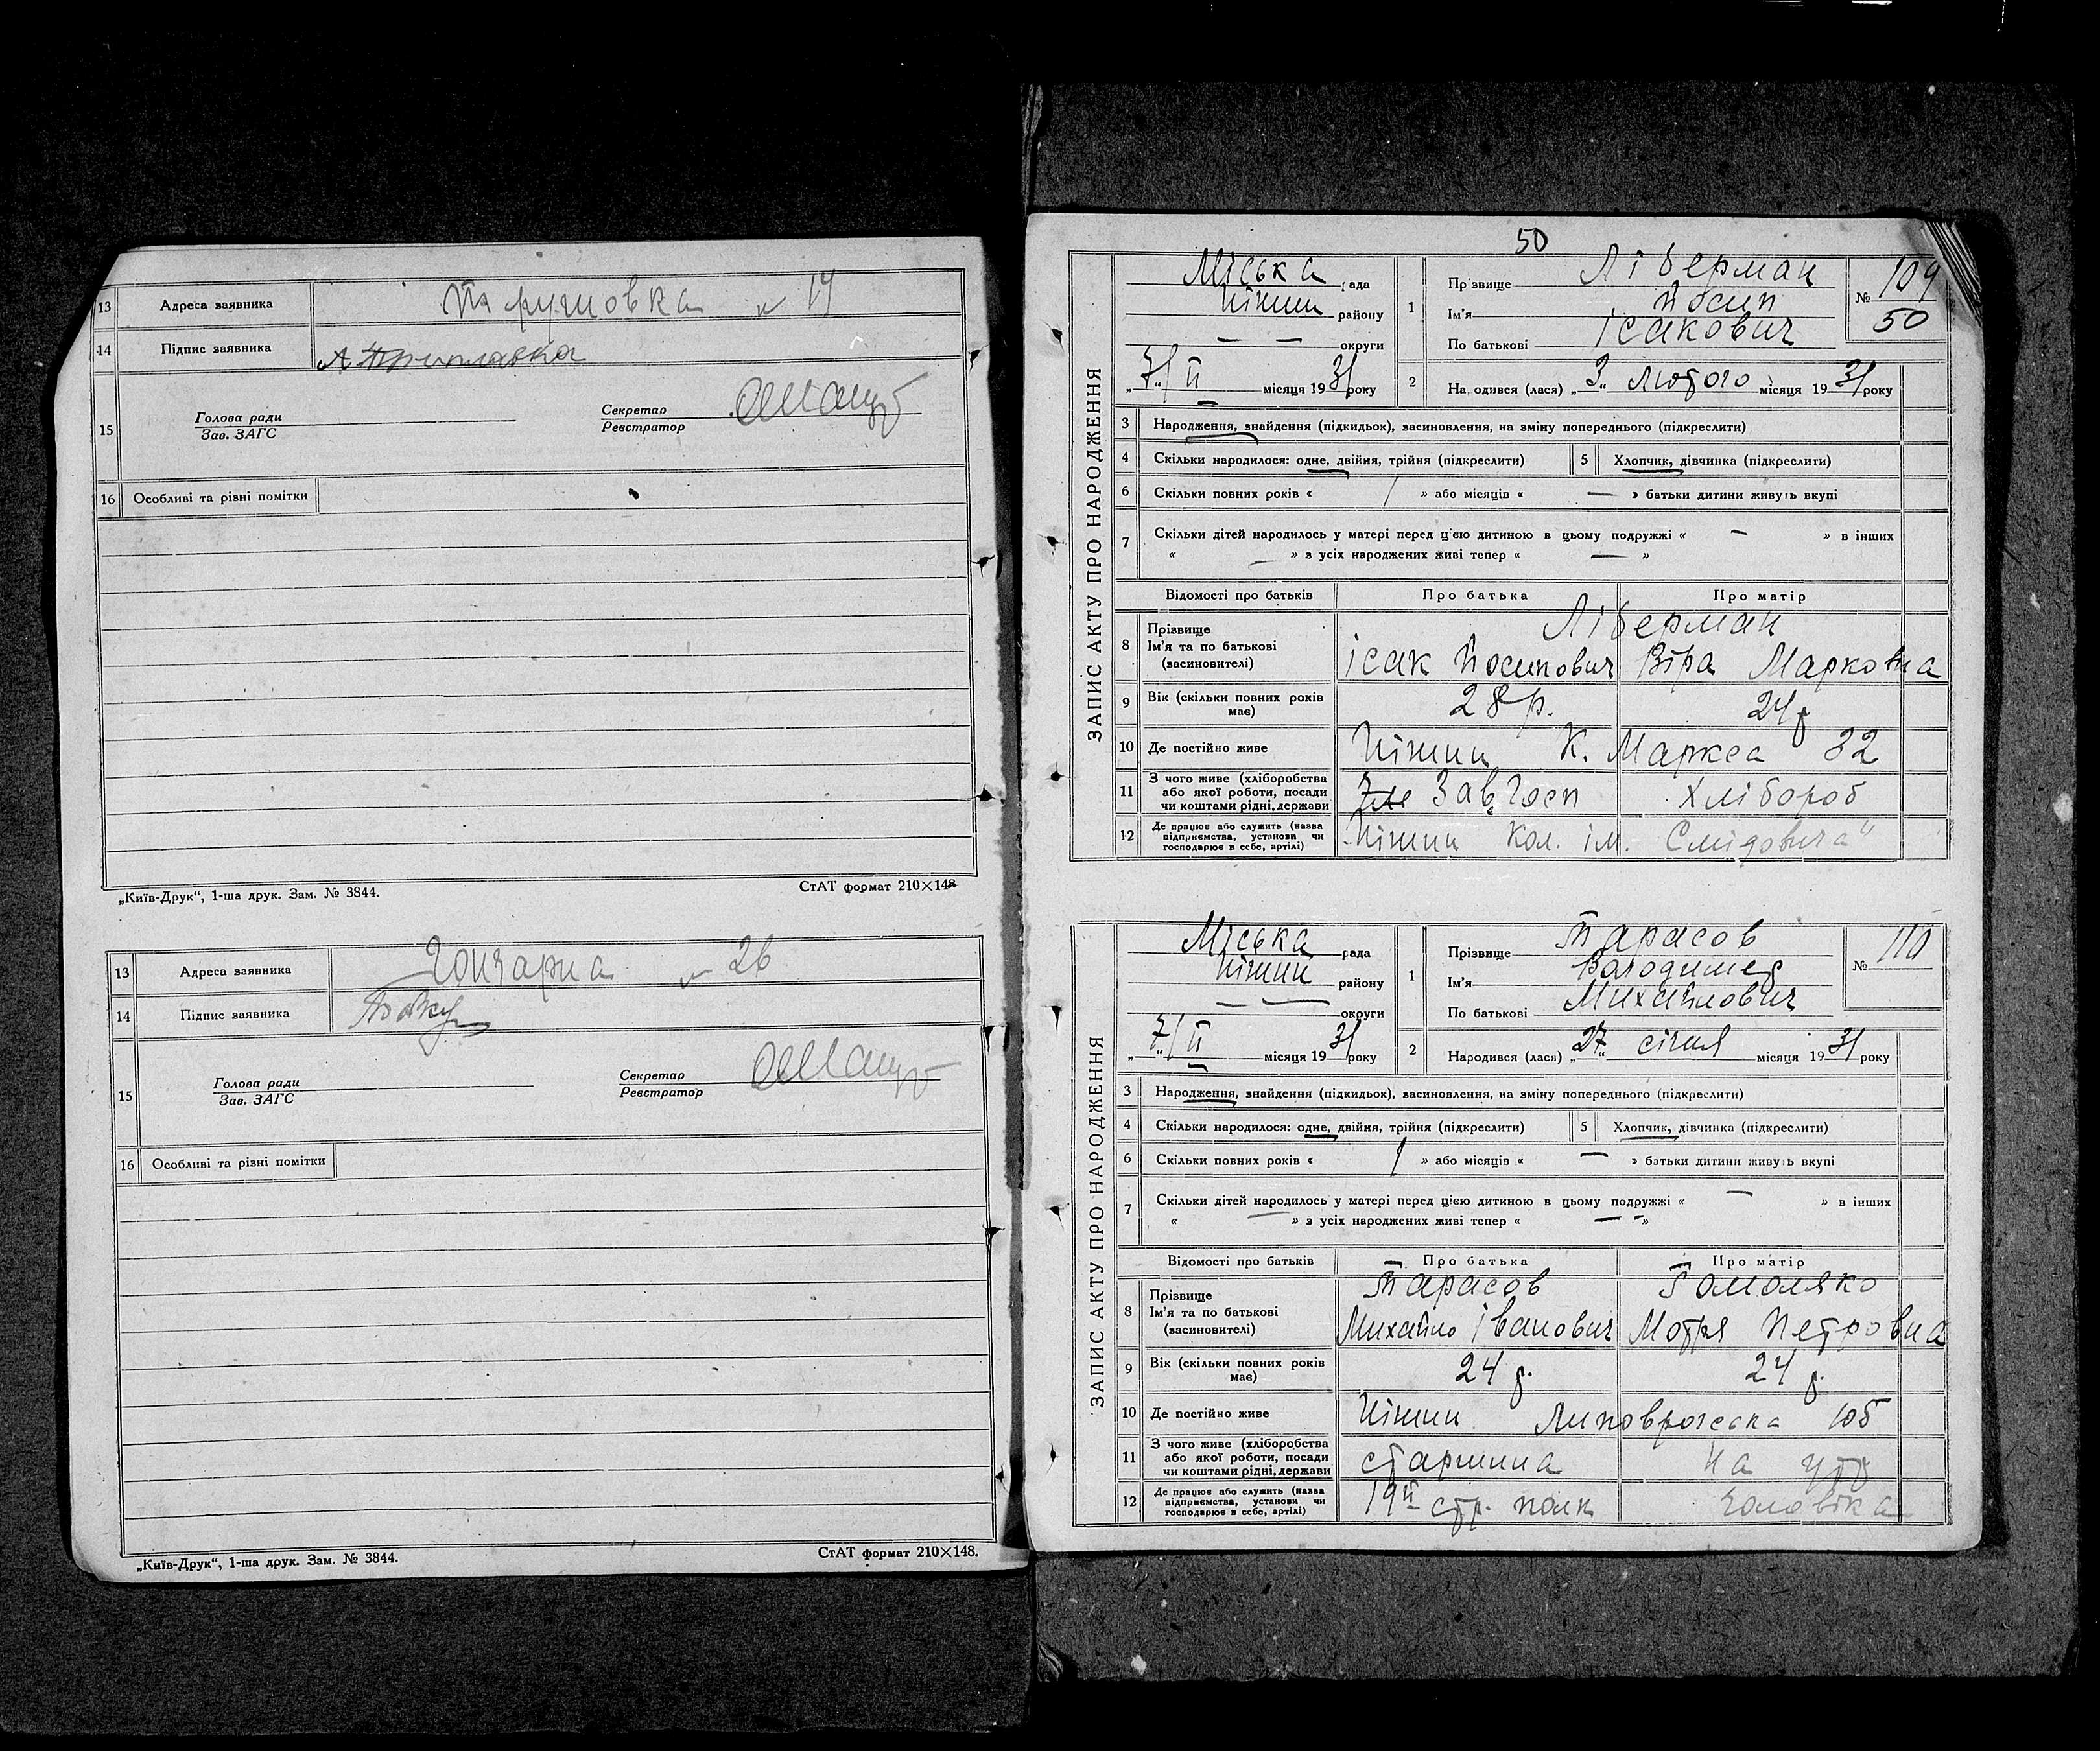 13 Адреса заявника № 14
14 Підпис заявника
15 Голова ради Секретар
Зав. ЗАГС Реєстратор
16 Особливі та різні помітки
„Київ-Друк“, 1-ша друк. Зам. № 3844. СтАТ формат 210×148
13 Адреса заявника Гончарна № 26
14 Підпис заявника
15 Голова ради Секретар
Зав. ЗАГС Реєстратор
16 Особливі та різні помітки
„Київ-Друк“, 1-ша друк. Зам. № 3844. СтАТ формат 210×148.
50
ЗАПИС АКТУ ПРО НАРОДЖЕННЯ
Міська рада
Ніжин району
— — округи
„7“/ II місяця 1931 року
1 Прізвище Ліберман
Ім'я Йосип
По батькові Ісакович
№ 109
50
2 Народився (лася) „3“ Лютого місяця 1931 року
3 Народження, знайдення (підкидьок), засиновлення, на зміну попереднього (підкреслити)
4 Скільки народилося: одне, двійня, трійня (підкреслити) 5 Хлопчик, дівчинка (підкреслити)
6 Скільки повних років « 1 » або місяців « — » батьки дитини живуть вкупі
7 Скільки дітей народилось у матері перед цією дитиною в цьому подружжі « — » в інших
« — » з усіх народжених живі тепер « — »
Відомості про батьків Про батька Про матір
8 Прізвище Ліберман
Ім'я та по батькові Ісак Йосипович Віра Марковна
(засиновителі)
9 Вік (скільки повних років має) 28 р. 24 р.
10 Де постійно живе Ніжин К. Маркса 32
11 З чого живе (хліборобства або якої роботи, посади чи коштами рідні, держави Зав. Госп Хлібороб
12 Де працює або служить (назва підприємства, установи чи господарює в себе, артілі) Ніжин Кол. ім. Смідовича"
ЗАПИС АКТУ ПРО НАРОДЖЕННЯ
Міська рада
Ніжин району
— — округи
„7“/ II місяця 1931 року
1 Прізвище Тарасов
Ім'я Володимер
По батькові Михайлович
№ 110
2 Народився (лася) „27“ січня місяця 1931 року
3 Народження, знайдення (підкидьок), засиновлення, на зміну попереднього (підкреслити)
4 Скільки народилося: одне, двійня, трійня (підкреслити) 5 Хлопчик, дівчинка (підкреслити)
6 Скільки повних років « 1 » або місяців « — » батьки дитини живуть вкупі
7 Скільки дітей народилось у матері перед цією дитиною в цьому подружжі « — » в інших
« — » з усіх народжених живі тепер « — »
Відомості про батьків Про батька Про матір
8 Прізвище Тарасов Гомоляко
Ім'я та по батькові Михайло Іванович Мотря Петровна
(засиновителі)
9 Вік (скільки повних років має) 24 р. 24 р.
10 Де постійно живе Ніжин
11 З чого живе (хліборобства або якої роботи, посади чи коштами рідні, держави старшина На утр
12 Де працює або служить (назва підприємства, установи чи господарює в себе, артілі) 19й стр. полк чоловіка